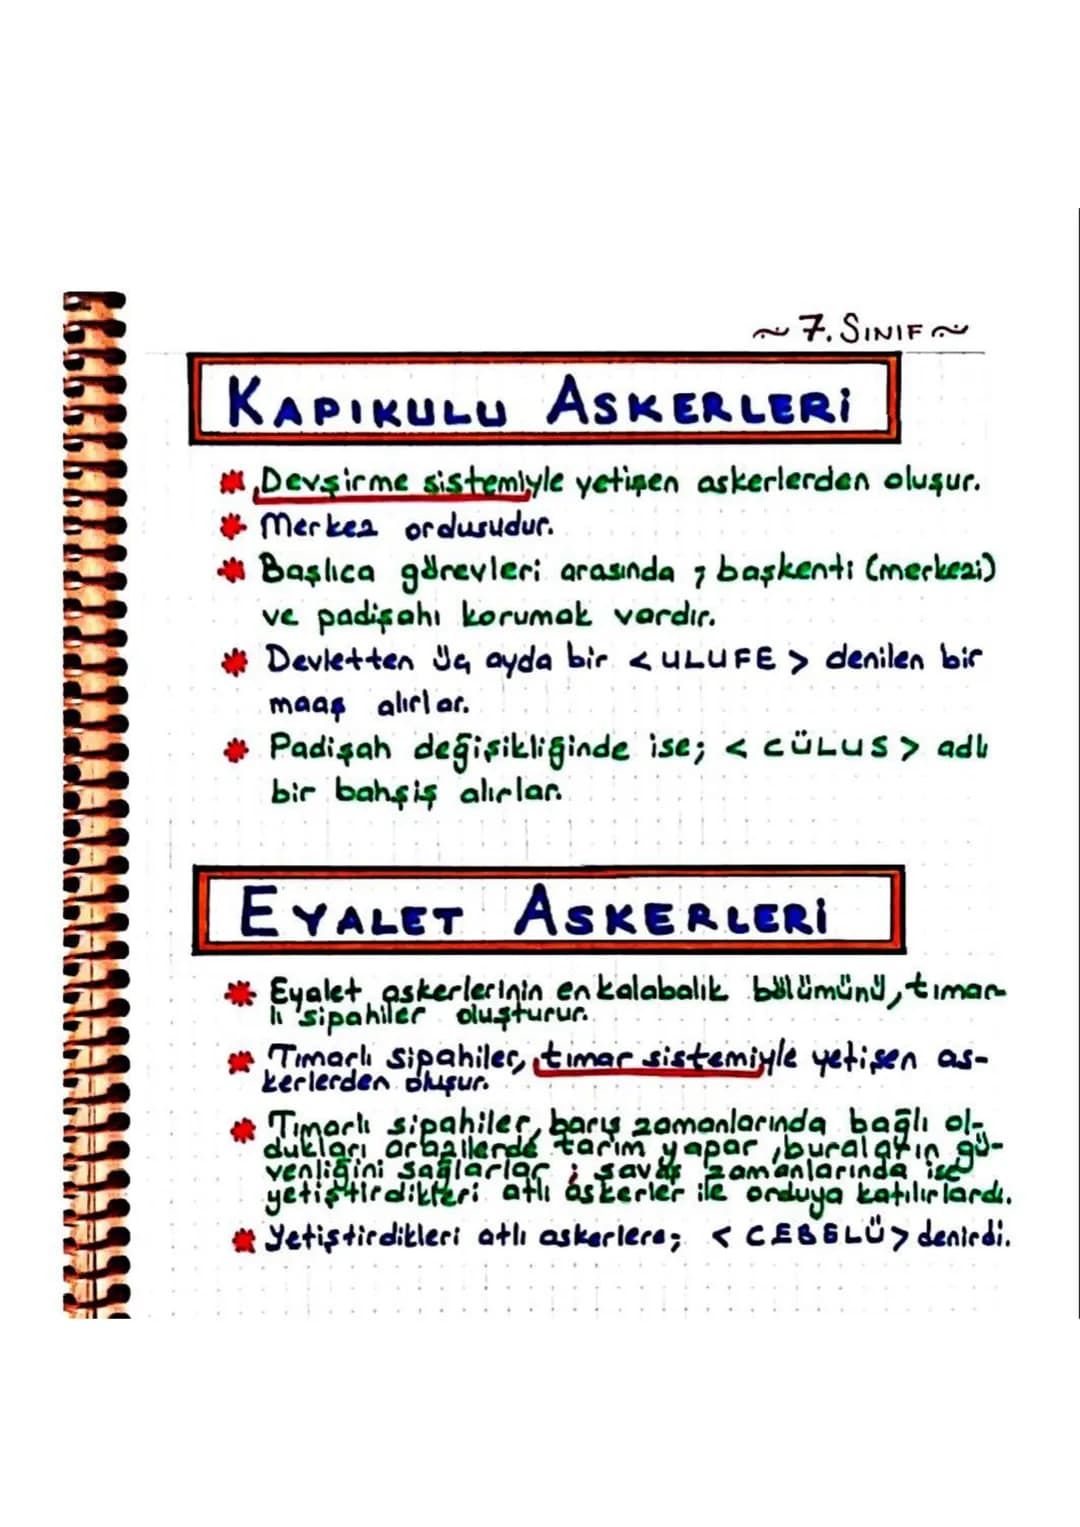 ~ 7. SINIF ~
KAPIKULU ASKERLERİ
Devşirme sistemiyle yetişen askerlerden oluşur.
Merkez ordusudur.
Başlıca görevleri arasında ; başkenti (merkezi)
ve padişahı korumak vardır.
Devletten üç ayda bir < ULUFE > denilen bir
maaş alırlar.
Padişah değişikliğinde ise; < CÜLUS > adlı
bir bahşiş alırlar.
EYALET ASKERLERİ
Eyalet askerlerinin en kalabalık bölümünü, tımar-
lı sipahiler oluşturur.
Tımarlı sipahiler, tımar sistemiyle yetişen as-
kerlerden oluşur.
Tımarlı sipahiler, barış zamanlarında bağlı ol-
dukları arazilerde tarım yapar, buraların gü-
venliğini sağlarlar ; savaş zamanlarında ise
yetiştirdikleri atlı askerler ile orduya katılırlardı.
Yetiştirdikleri atlı askerlere; < CEBELÜ > denirdi.